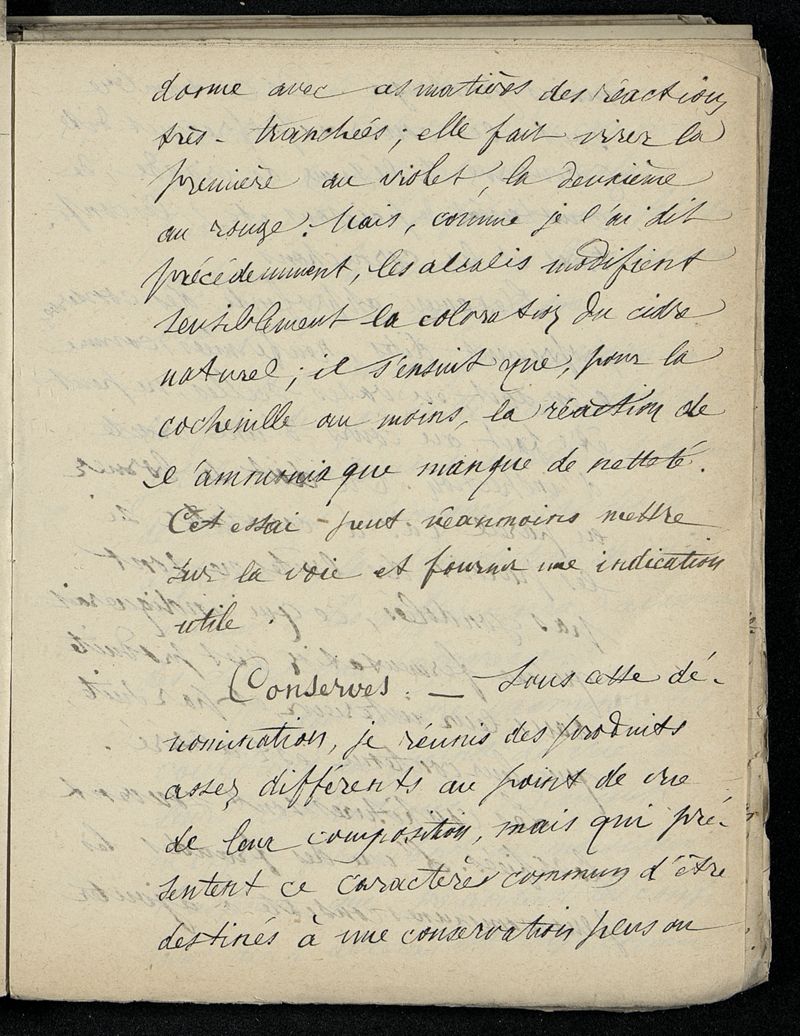 donne avec ces matières des réactions
très-tranchées; elle fait virer la
première au violet, la deuxième
au rouge. Mais, comme je l'ai dit
précédemment, les alcalis modifient
sensiblement la coloration du cidre
naturel; il s'ensuit que, pour la
cochenille au moins, la réaction de
l'ammoniaque manque de netteté.
Cet essai peut néanmoins mettre
sur la voie et fournir une indication
utile.
Conserves. — Sous cette dé-
nomination, je réunis des produits
assez différents au point de vue
de leur composition, mais qui pré-
sentent ce caractère commun d'être
destinés à une conservation plus ou